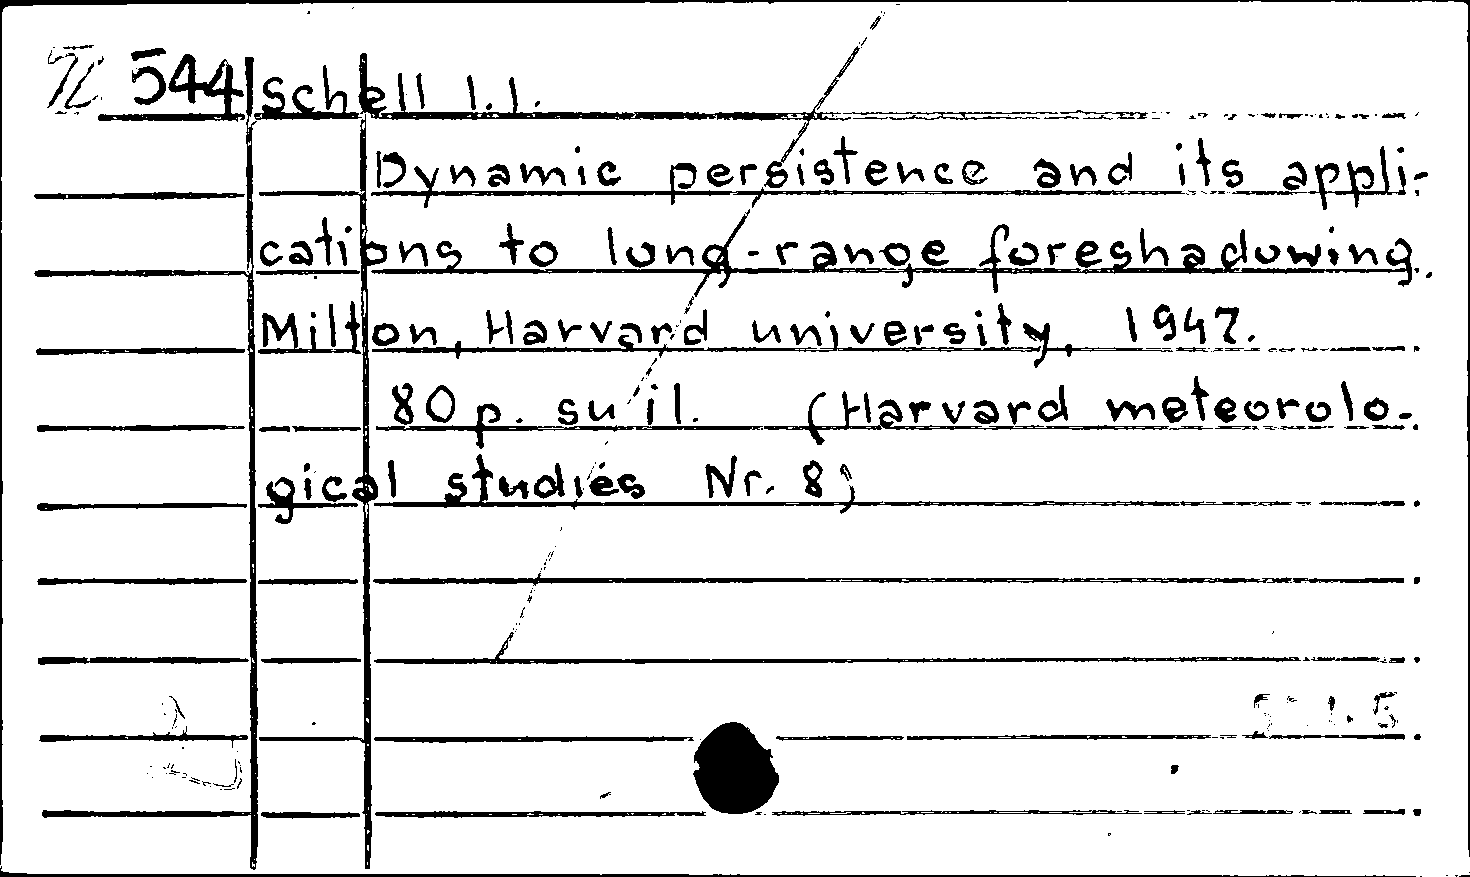 544 Schell I.I.
Dynamic persistence and its appli-
cations to long-range foreshadowing.
Milton, Harvard university, 1947.
80 p. su il. (Harvard meteorolo-
gical studies Nr. 8)